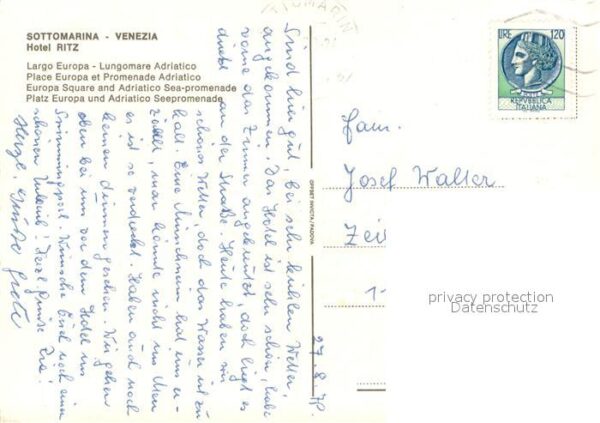 SOTTOMARINA - VENEZIA
Hotel RITZ
Largo Europa - Lungomare Adriatico
Place Europa et Promenade Adriatico
Europa Square and Adriatico Sea-promenade
Platz Europa und Adriatico Seepromenade
LIRE 120
REPVBBLICA
ITALIANA
OFFSET INVICTA/PADOVA
Fam.
Josef Waller
Zei
privacy protection
Datenschutz
27.8.
Sind hier gut, bei sehr kühlen Wetter,
angekommen. Das Hotel ist sehr schön, habe
vorne das Zimmer angekreuzt, doch liegt es
direkt an der Straße. Heute haben wir
schönes Wetter, doch das Wasser ist zu
kalt. Eine Münchnerin hat uns er-
zählt, man könnte nicht ins Meer
es ist so verdreckt. Haben auch noch
keinen drinnen gesehen. Wir gehen
oben bei uns vor dem Hotel ins
Swimmingpool. Wünsche Euch noch einen
schönen Urlaub! Herzl. Grüße
Herzl. Grüße